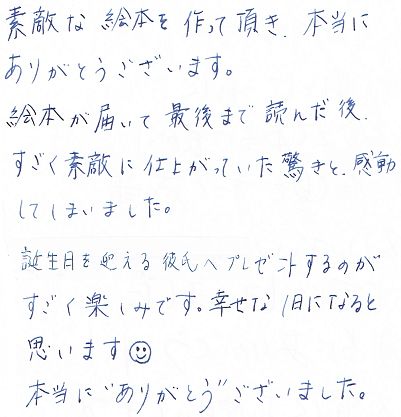 素敵な絵本を作って頂き、本当に
ありがとうございます。
絵本が届いて最後まで読んだ後、
すごく素敵に仕上がっていた驚きと、感動
してしまいました。
誕生日を迎える彼氏へプレゼントするのが
すごく楽しみです。幸せな1日になると
思います☺
本当に"ありがとう"ございました。